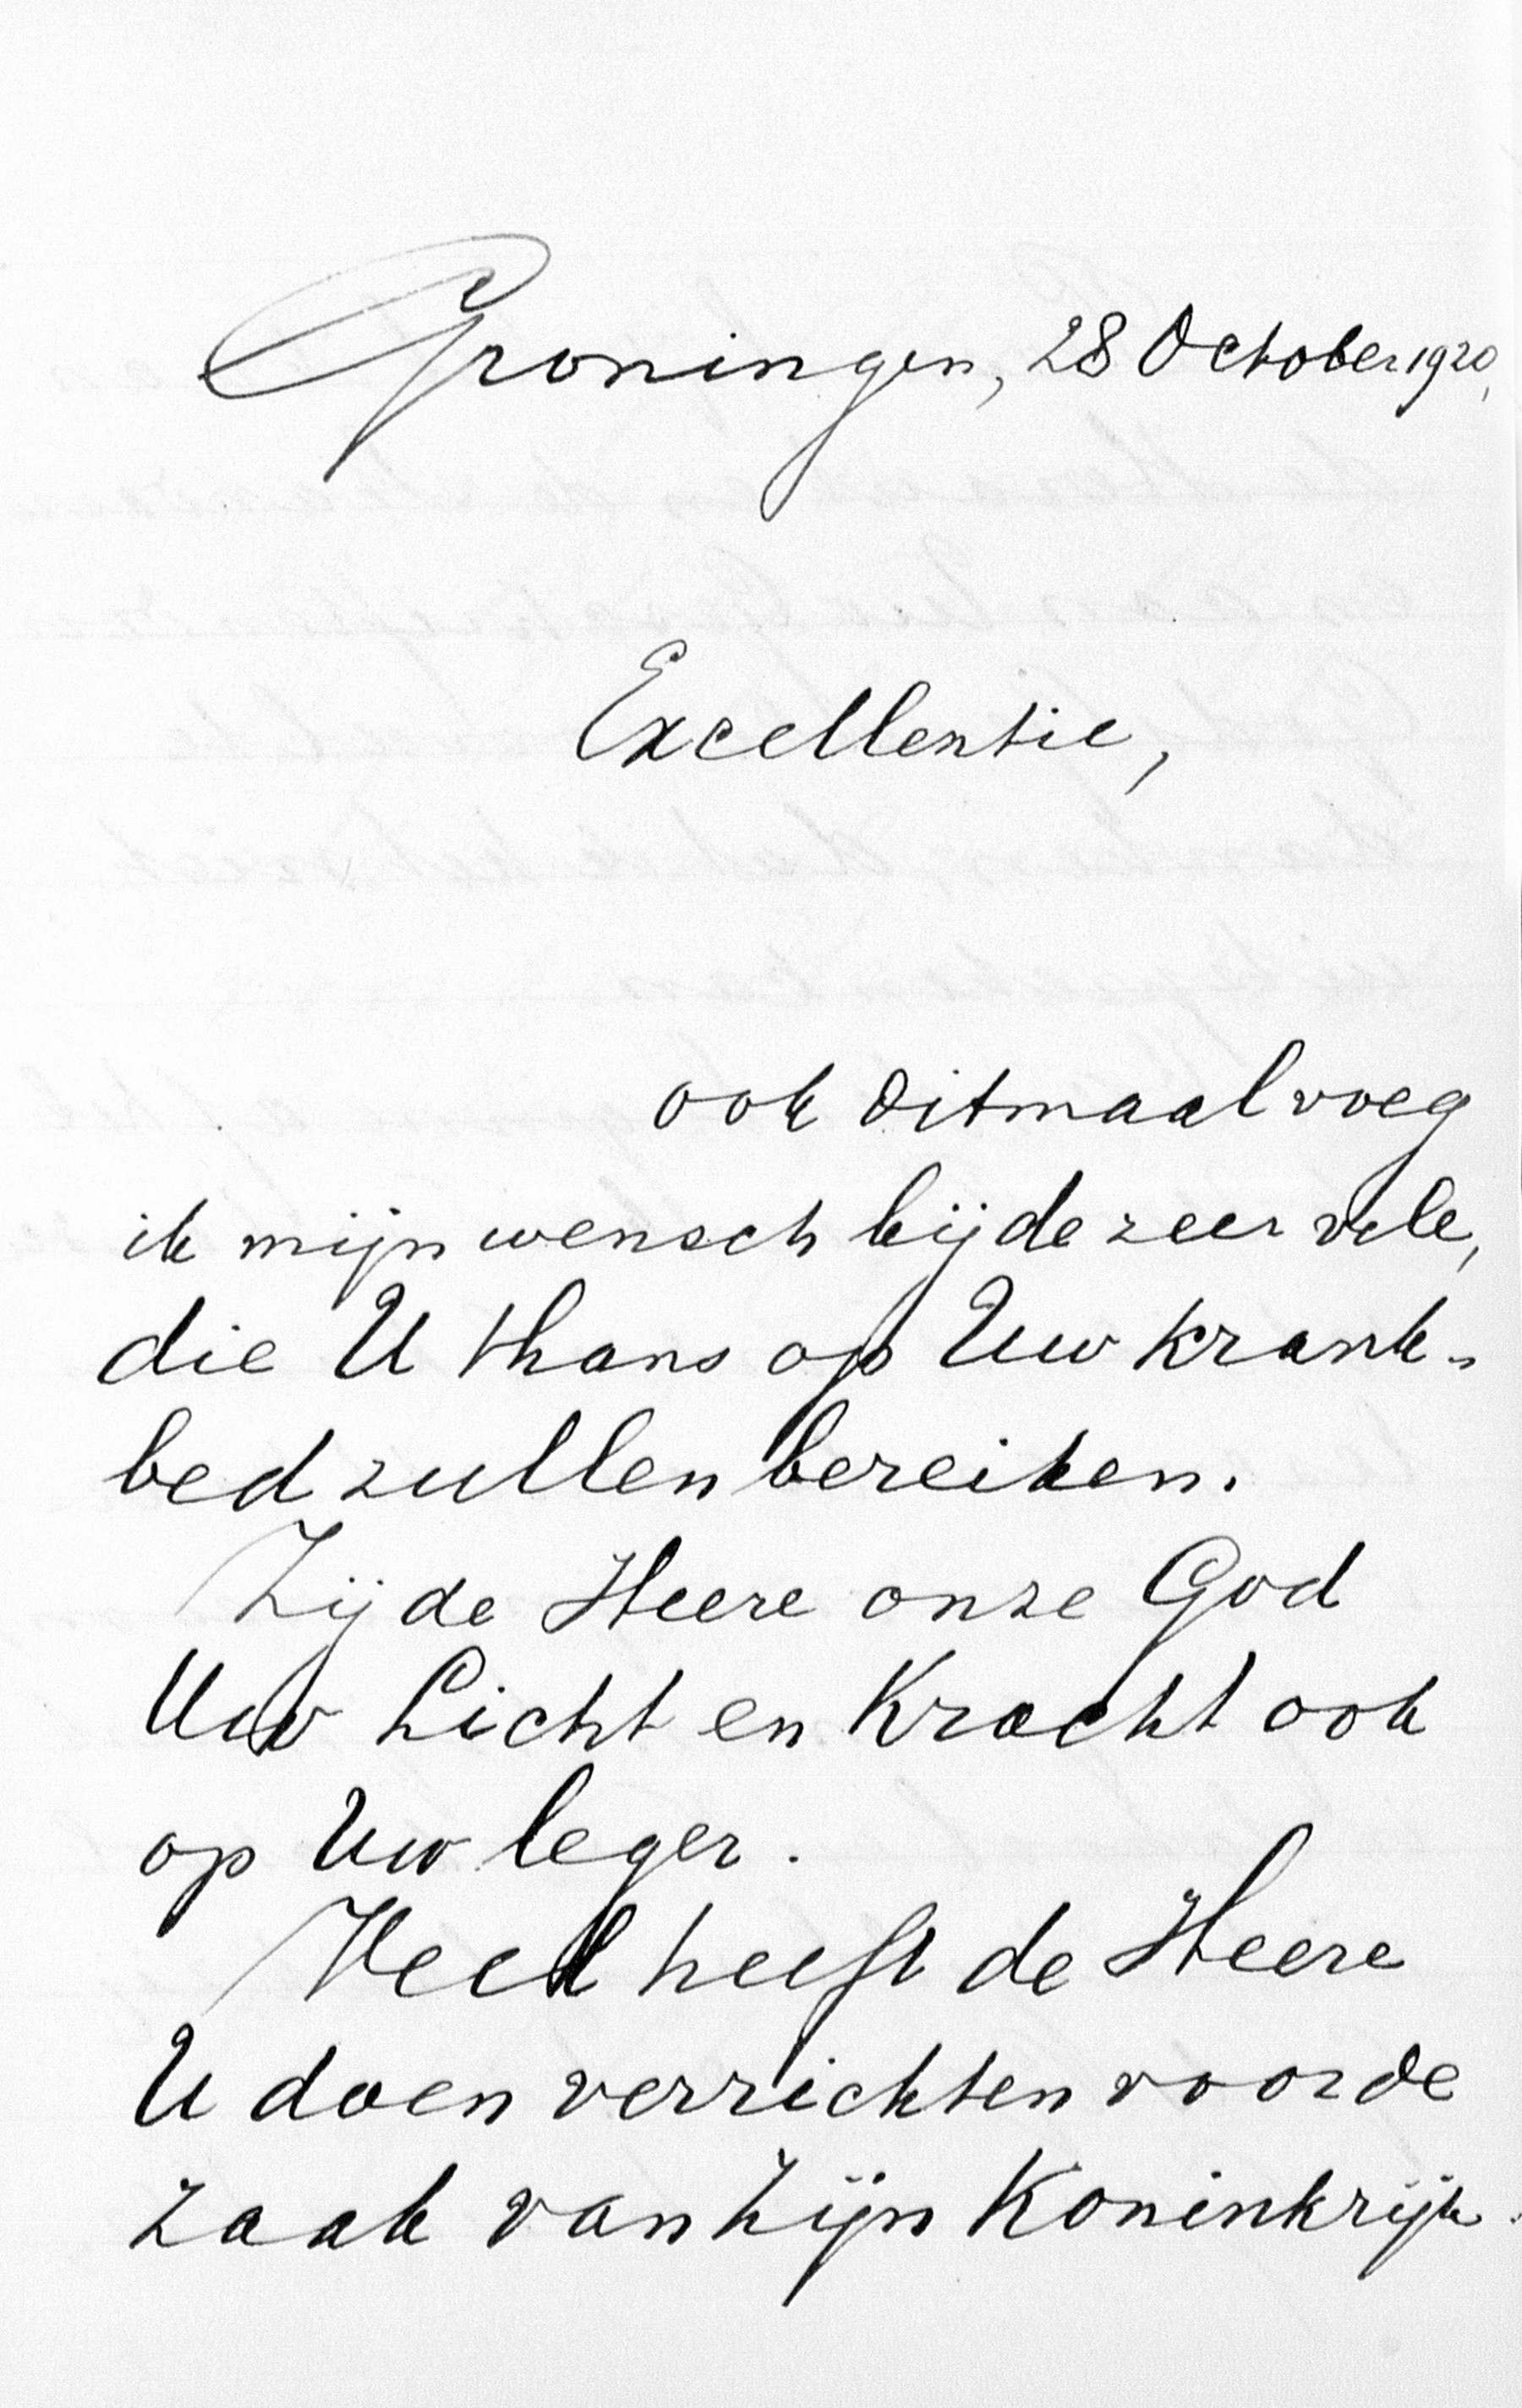 Groningen, 28 October 1920,
Excellentie,
ook ditmaal voeg
ik mijn wensch bij de zeer vele,
die U thans op Uw krank-
bed zullen bereiken.
Zij de Heere onze God
Uw Licht en Kracht ook
op Uw leger.
Veel heeft de Heere
U doen verrichten voor de
zaak van Zijn Koninkrijk.